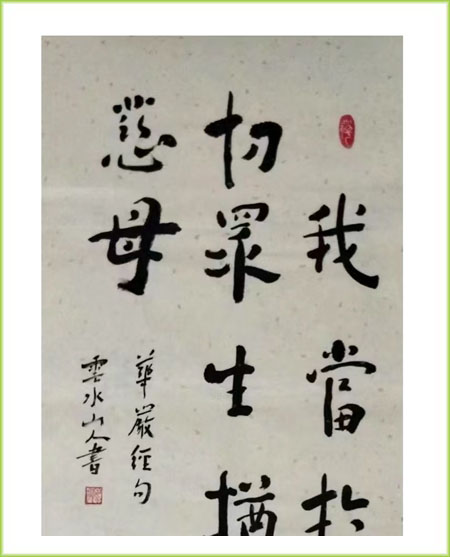 我當於
切眾生猶
慈母
華嚴經句
雲水山人書